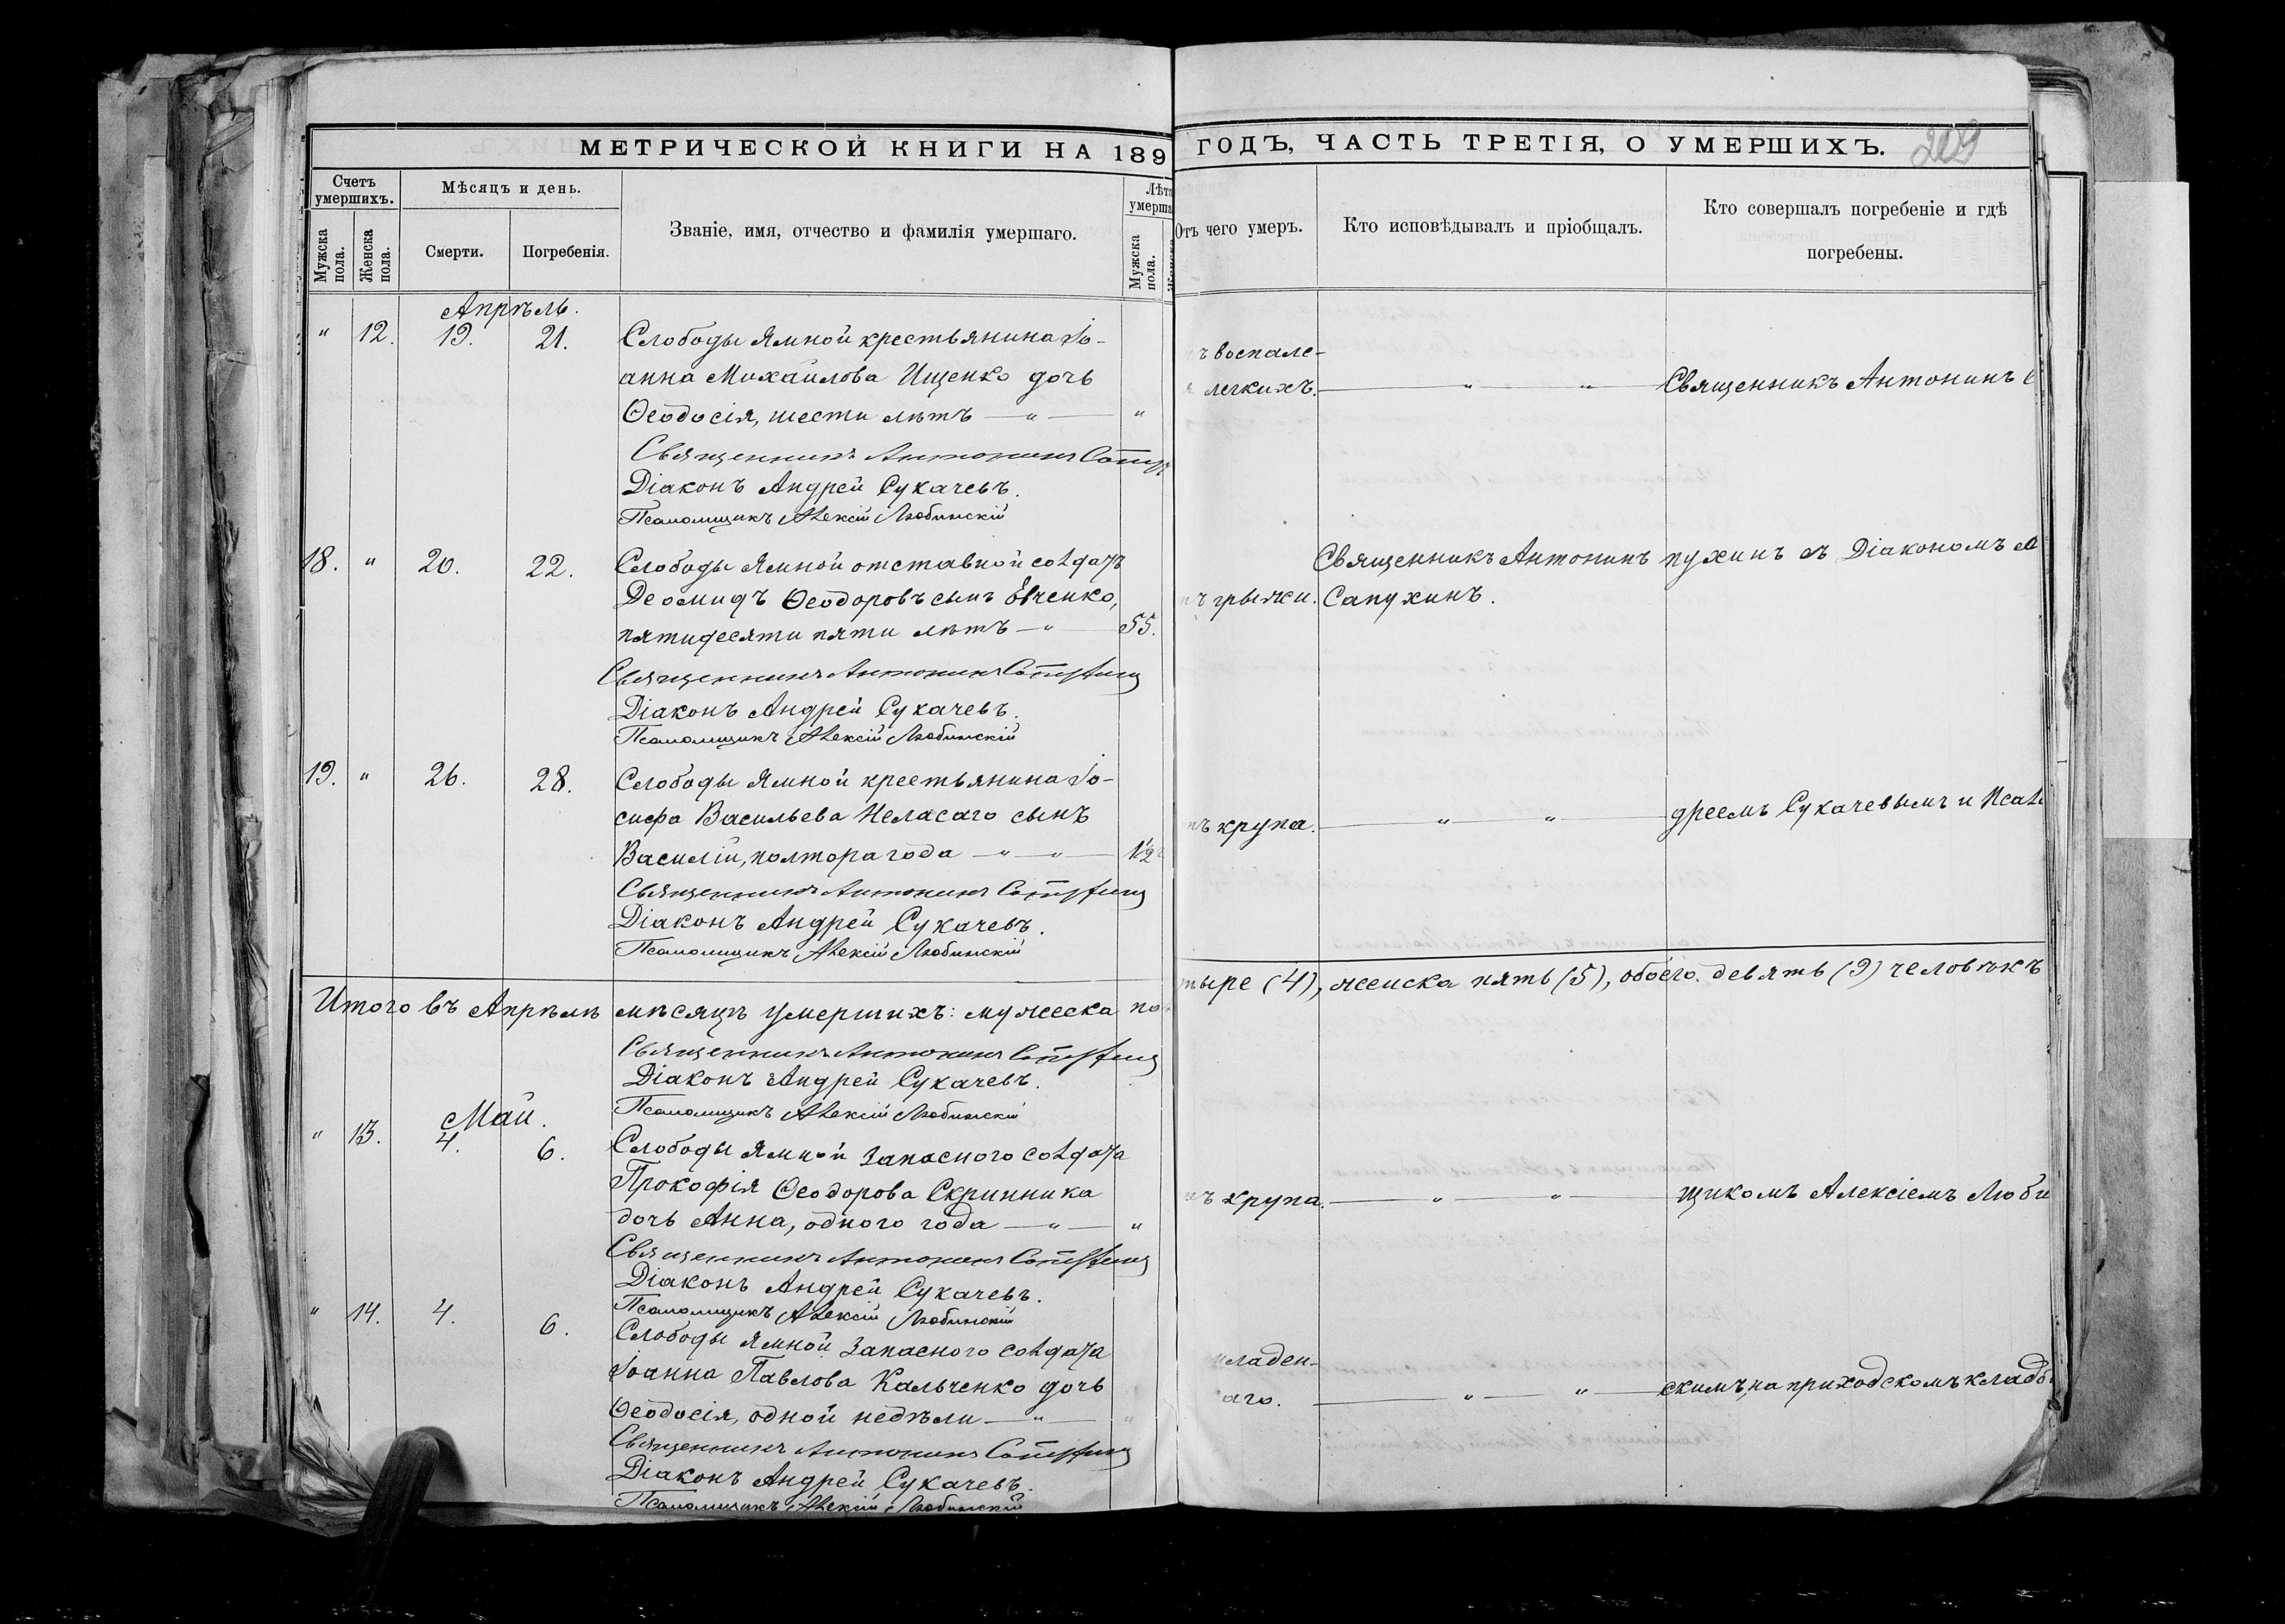 МЕТРИЧЕСКОЙ КНИГИ НА 189
Счетъ умершихъ.
Мужска пола.
Женска пола.
Мѣсяцъ и день.
Смерти.
Погребенія.
Званіе, имя, отчество и фамилія умершаго.
Лѣта умерша
Мужска пола.
Апрѣль.
" 12. 19. 21. Слободы Ямной крестьянина Іо-
анна Михайлова Ищенко дочь
Ѳеодосія, шести лѣтъ — " — "
Священникъ Антонинъ
Діаконъ Андрей Сукачевъ.
Псаломщикъ Алексій Любинскій
18. " 20. 22. Слободы Ямной отставной солдатъ
Деомидъ Ѳеодоровъ сынъ Овченко,
пятидесяти пяти лѣтъ — " — 55.
Священникъ Антонинъ Сапухинъ
Діаконъ Андрей Сукачевъ.
Псаломщикъ Алексій Любинскій
19. " 26. 28. Слободы Ямной крестьянина Іо-
сифа Васильева Неласаго сынъ
Василій, полтора года — " — " — 1½
Священникъ Антонинъ Сапухинъ
Діаконъ Андрей Сукачевъ.
Псаломщикъ Алексій Любинскій
Итого въ Апрѣлѣ мѣсяцѣ умершихъ: мужеска по
Священникъ Антонинъ Сапухинъ
Діаконъ Андрей Сукачевъ.
Псаломщикъ Алексій Любинскій
Май.
" 13. 4. 6. Слободы Ямной запасного солдата
Прокофія Ѳеодорова Скринника
дочь Анна, одного года — " — "
Священникъ Антонинъ Сапухинъ
Діаконъ Андрей Сукачевъ.
Псаломщикъ Алексій Любинскій
" 14. 4. 6. Слободы Ямной запасного солдата
Іоанна Павлова Кальченко дочь
Ѳеодосія, одной недѣли — " — "
Священникъ Антонинъ Сапухинъ
Діаконъ Андрей Сукачевъ.
Псаломщикъ Алексій Любинскій
ГОДЪ, ЧАСТЬ ТРЕТІЯ, О УМЕРШИХЪ.
209
Отъ чего умеръ.
Кто исповѣдывалъ и пріобщалъ.
Кто совершалъ погребеніе и гдѣ
погребены.
ъ воспале-
легкихъ. — " — " — Священникъ Антонинъ С
Священникъ Антонинъ пухинъ съ Діакономъ Ан
грыжи. Сапухинъ.
ъ крупа. — " — " — дреемъ Сукачевымъ и Псал
тыре (4), женска пять (5), обоего девять (9) человѣкъ
ъ крупа. — " — " — щикомъ Алексіемъ Люби
младен-
аго. — " — " — скимъ, на приходскомъ кладб